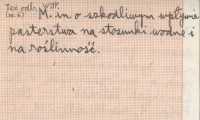 Też odb. WŁP.
(nr. 6) M. in. o szkodliwym wpływie
pasterstwa na stosunki wodne i
na roślinność.